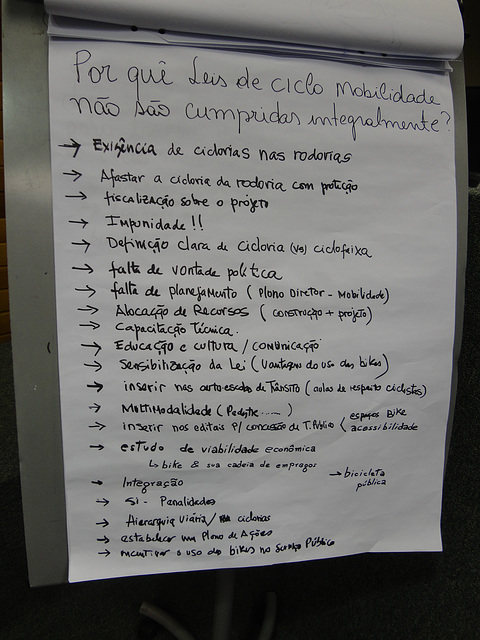 Por quê Leis de ciclo mobilidade
não são cumpridas integralmente?
→ Exigência de ciclorias nas rodorias
→ Afastar a cicloria da rodoria com proteção
→ fiscalização sobre o projeto
→ Impunidade!!
→ Definição clara de cicloria (vs) ciclofaixa
→ falta de vontade política
→ falta de planejamento (Plono Diretor - Mobilidade)
→ Alocação de Recursos (construção + projeto)
→ Capacitação Técnica.
→ Educação e cultura / comunicação
→ Sensibilização da Lei (Vantagens do uso das bikes)
→ inserir nas autoescolas de Trânsito (aulas de respeito ciclistes)
→ Multimodalidade (Pedestre ......)
→ inserir nos editais p/ concessão de T. Público < espaços Bike
acessibilidade
→ estudo de viabilidade econômica
↳ bike & sua cadeia de empregos
→ Integração → bicicleta
pública
→ Si - Penalidades
→ Hierarquia viária / ciclorias
→ estabelecer um Plano de Ações
→ incentivar o uso das bikes no Serviço Público